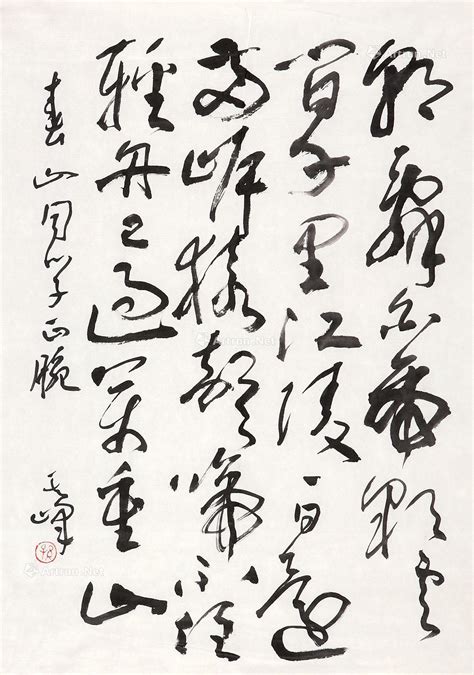 朝辭白帝彩雲
間千里江陵一日還
兩岸猿聲啼不住
輕舟已過萬重山
春山同學正腕
其峰
Artron.Net